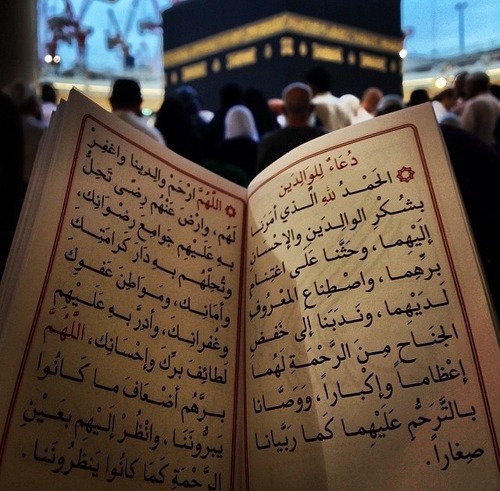 دُعَاءٌ لِلوَالِدَيْنِ
الْحَمْدُ للهِ الَّذي أَمَرَنَا
بِشُكرِ الوالِدَينِ والإِحْسَانِ
إِلَيْهِما، وحَثَّنَا عَلَى اغْتِنَامِ
بِرِّهِما، واصْطِناعِ المَعْرُوفِ
لَدَيْهِما، ونَدَبَنَا إلى خَفْضِ
الجَنَاحِ مِنَ الرَّحْمَةِ لَهُما
إعْظاماً وإكْبَاراً، ووَصَّانا
بالتَّرَحُّمِ عَلَيهِما كَما رَبَّيَانا
صِغَاراً.
اللَّهُمَّ ارْحَمْ والِدِينا واغْفِرْ
لَهُم، وارْضَ عَنْهُم رِضىً تَحِلُّ
بهِ عَلَيهم جَوامِعَ رِضْوَانِكَ،
وتُحِلُّهُم بهِ دَارَ كَرامَتِكَ
وأَمَانِكَ، ومَوَاطِنَ عَفْوِكَ
وغُفْرانِكَ، وأَدِرَّ بهِ عَلَيْهِم
لَطائِفَ بِرِّكَ وإحْسَانِكَ، اللَّهُمَّ
بِرَّهُم أضْعَافَ ما كَانُوا
يَبَرُّونَنَا، وانْظُرْ إلَيْهِم بِعَيْنِ
الرَّحْمَةِ كَمَا كانُوا يَنظُرُونَنَا.